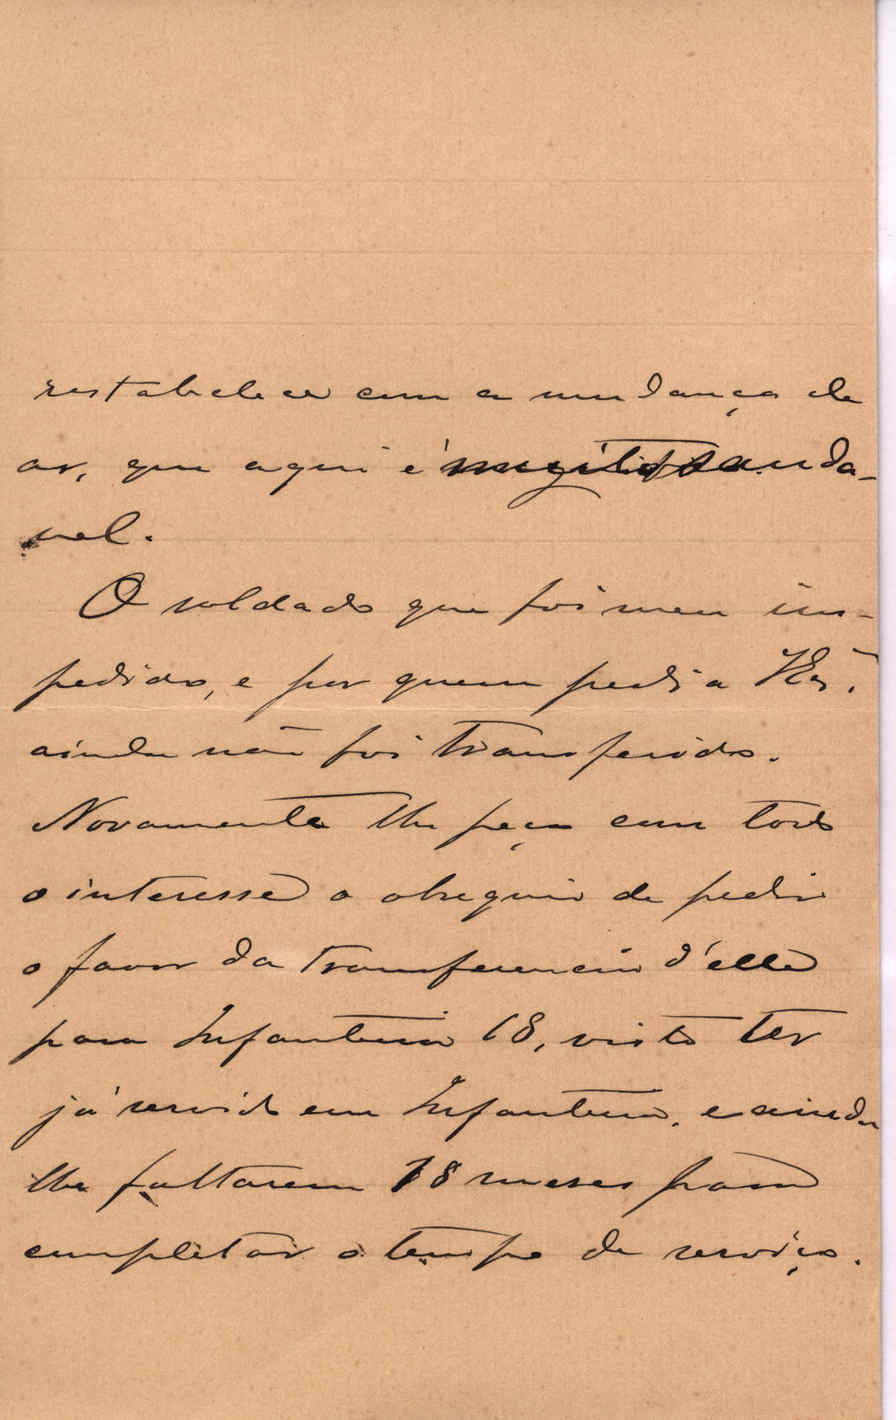 restabelecer com a mudança de
ar, que aqui é muito sauda-
vel.
O soldado que foi meu im-
pedido, e por quem pedi a VExª.
ainda não foi transferido.
Novamente lhe peço com todo
o interesse o obsequio de pedir
o favor da transferencia d'elle
para Infanteria 18, visto ter
já servido em Infanteria, e ainda
lhe faltarem 18 meses para
completar o tempo de serviço.